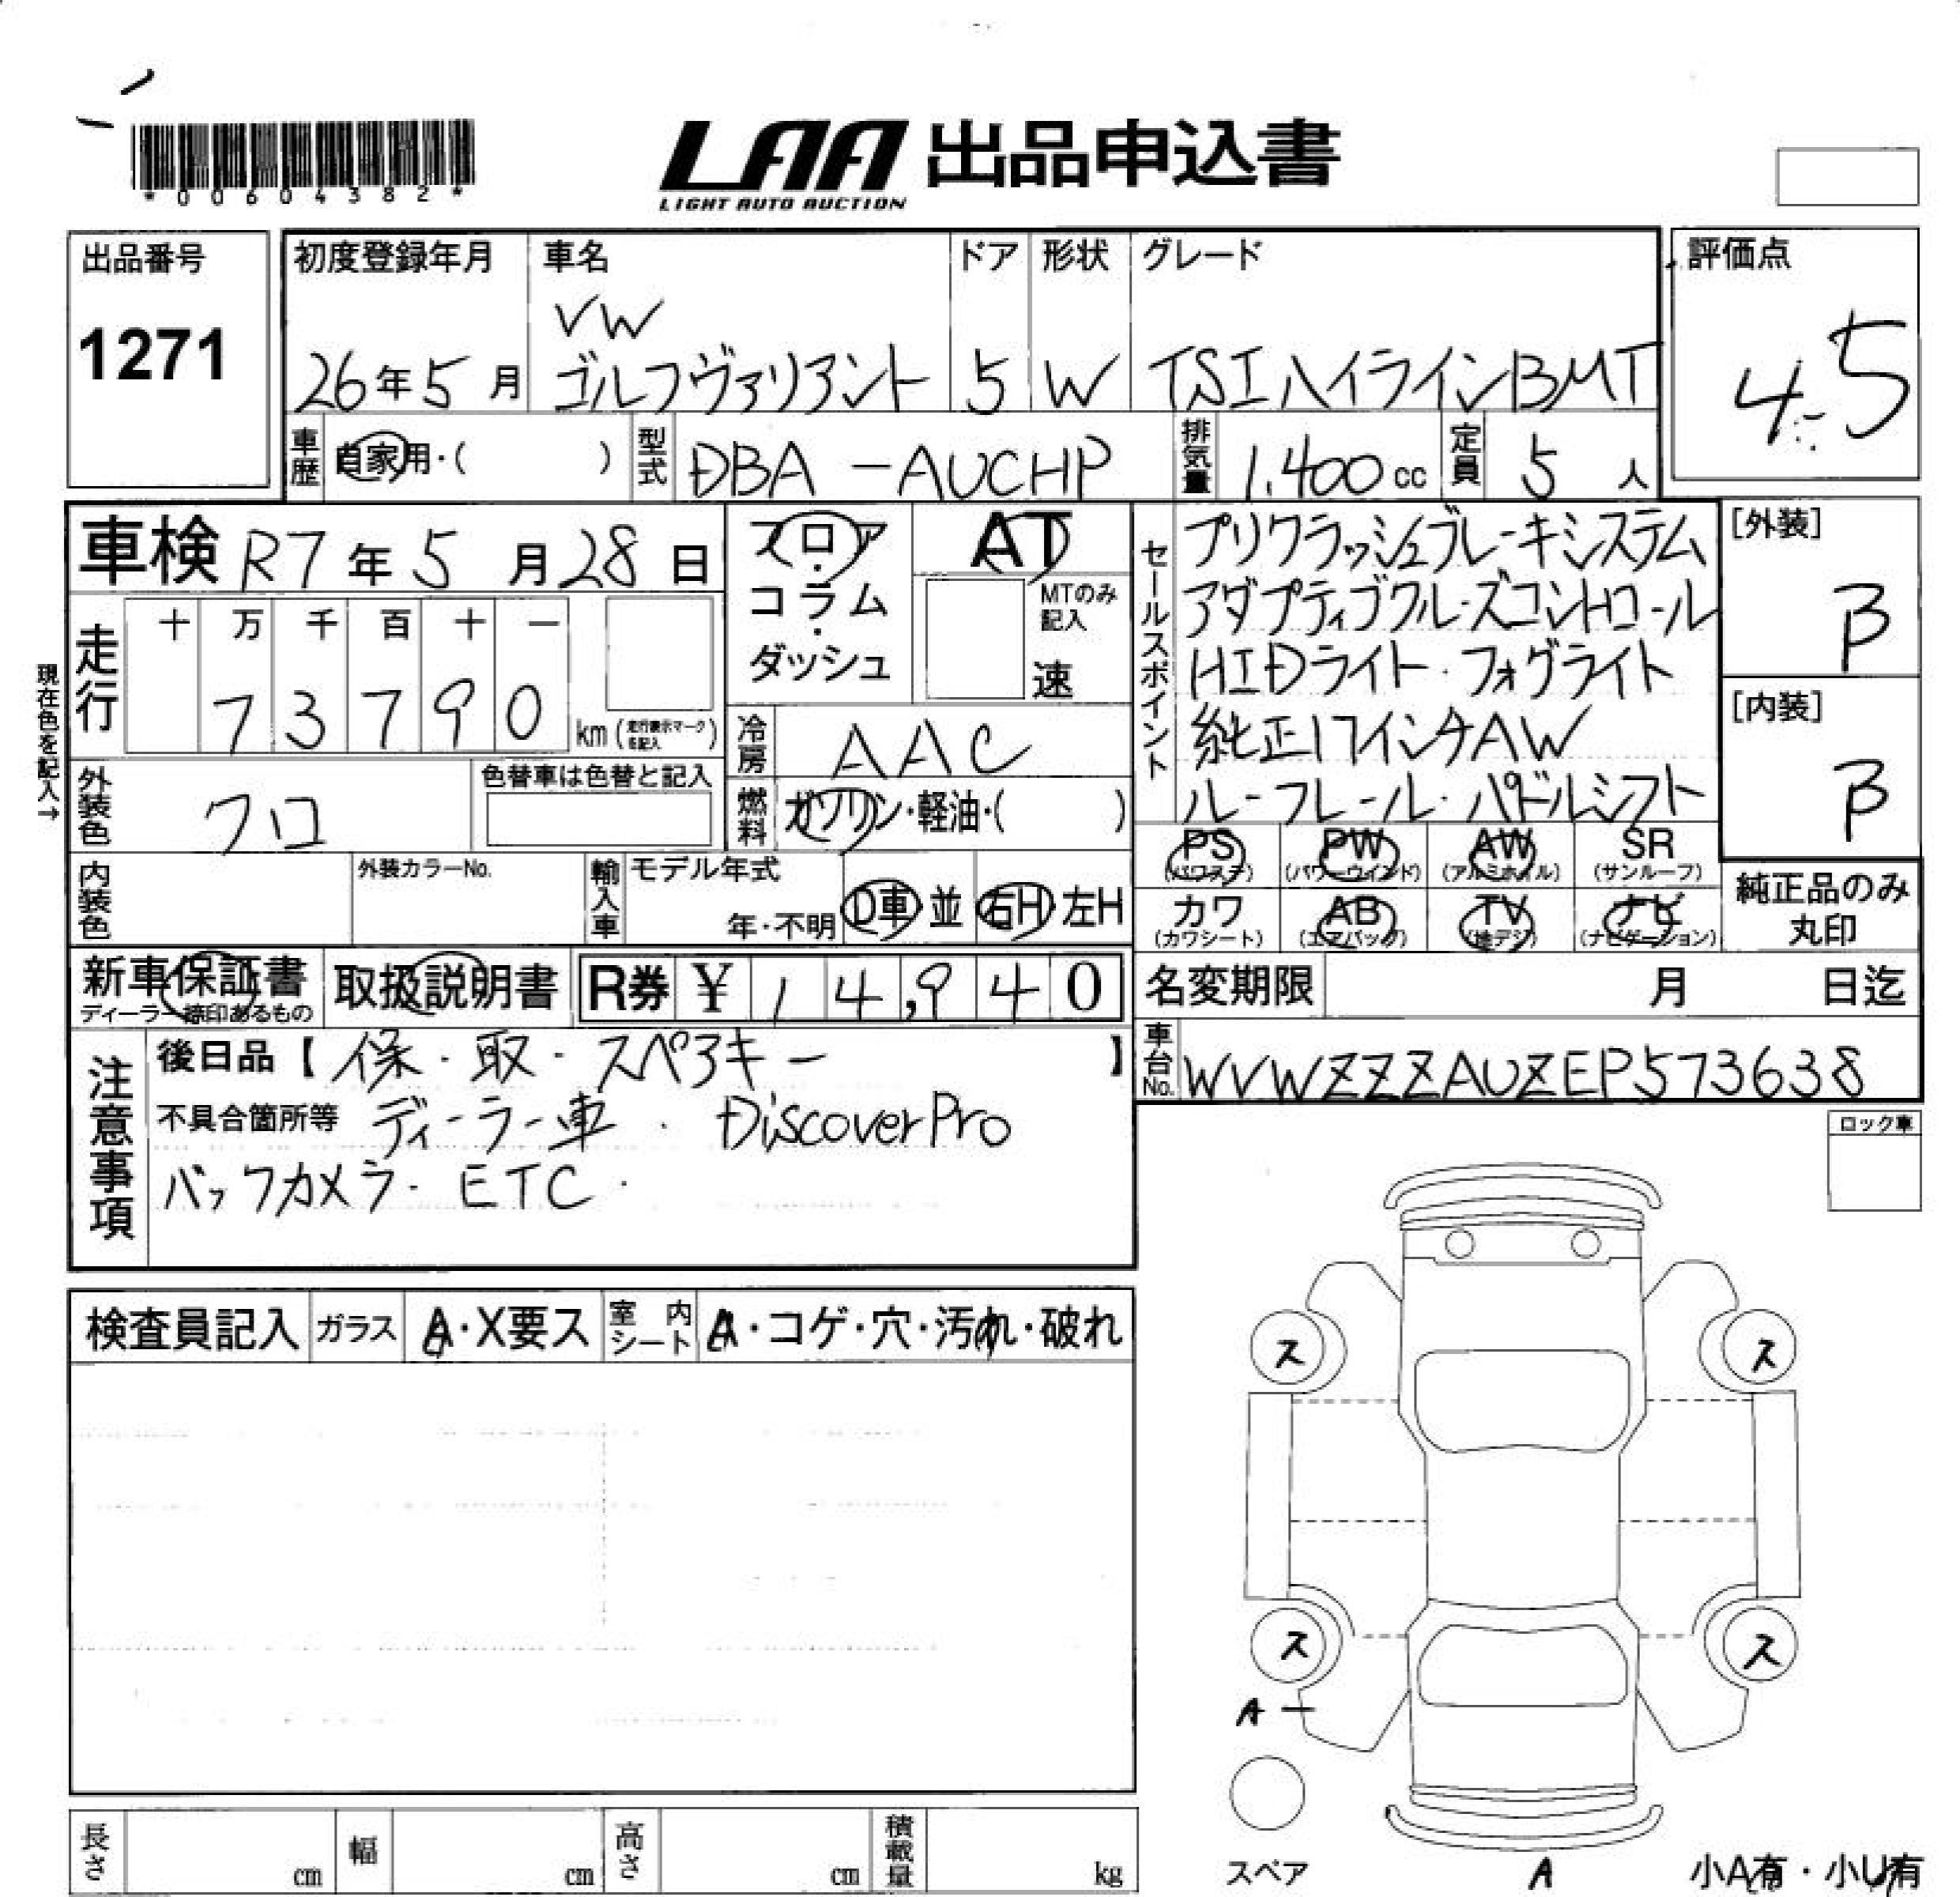 *00604382*
LAA 出品申込書
LIGHT AUTO AUCTION
出品番号
1271
初度登録年月
26年5月
車名
VW
ゴルフヴァリアント
ドア
5
形状
W
グレード
TSIハイラインBMT
評価点
4.5
車歴 自家用・( )
型式 DBA-AUCHP
排気量 1,400cc
定員 5人
車検 R7年5月28日
フロア・コラム・ダッシュ
AT
MTのみ記入
速
セールスポイント
プリクラッシュブレーキシステム
アダプティブクルーズコントロール
HIDライト・フォグライト
純正17インチAW
ルーフレール・パドルシフト
[外装]
B
[内装]
B
現在色を記入→
走行 十 万 千 百 十 一
73790 km (走行表示マークを記入)
冷房 AAC
外装色 クロ
色替車は色替と記入
燃料 ガソリン・軽油・( )
内装色
外装カラーNo.
輸入車 モデル年式
年・不明 D車 並 右H 左H
PS (パワステ) PW (パワーウィンド) AW (アルミホイル) SR (サンルーフ)
カワ (カワシート) AB (エアバッグ) TV (地デジ) ナビ (ナビゲーション)
純正品のみ丸印
新車保証書
ディーラー捺印あるもの
取扱説明書
R券 ¥14,940
名変期限 月 日迄
車台No. WVWZZZAUZEP573638
注意事項
後日品【保・取・スペアキー】
不具合箇所等 ディーラー車・DiscoverPro
バックカメラ・ETC・
ロック車
検査員記入 ガラス A・X要ス 室内シート A・コゲ・穴・汚れ・破れ
ス ス
ス ス
A
スペア
A
小A有・小U有
長さ cm 幅 cm 高さ cm 積載量 kg